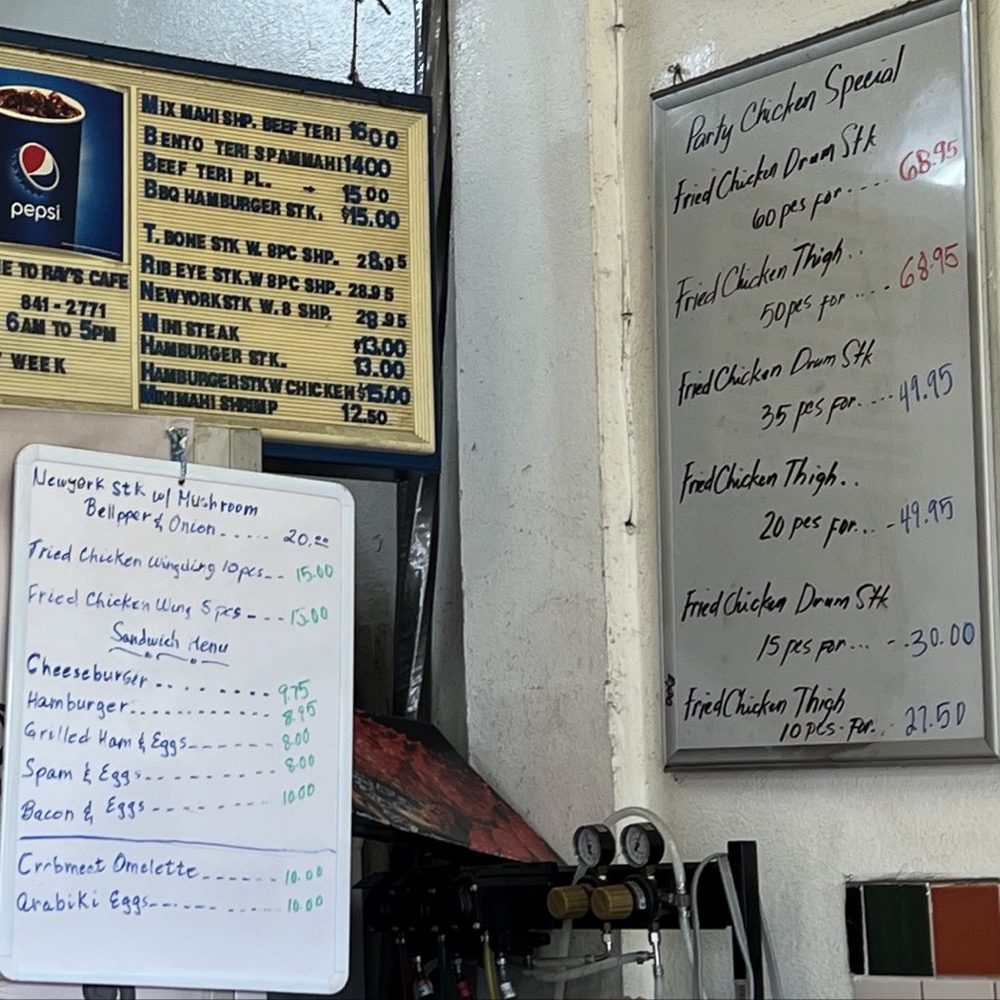 pepsi
E TO RAY'S CAFE
841-2771
6AM TO 5PM
WEEK
MIX MAHI SHP. BEEF TERI 1600
BENTO TERI SPAM MAHI 1400
BEEF TERI PL. → 15.00
BBQ HAMBURGER STK. $15.00
T. BONE STK W. 8PC SHP. 28.95
RIB EYE STK. W 8PC SHP. 28.95
NEWYORK STK W. 8 SHP. 28.95
MINI STEAK $13.00
HAMBURGER STK. 13.00
HAMBURGER STK W CHICKEN $15.00
MINI MAHI SHRIMP 12.50
Newyork Stk w/ Mushroom
Bellpper & Onion..... 20.00
Fried Chicken Wingding 10pcs-- 15.00
Fried Chicken Wing 5 pcs --- 15.00
Sandwich Menu
Cheeseburger -------- 9.75
Hamburger............ 8.95
Grilled Ham & Eggs------ 8.00
Spam & Eggs--------- 8.00
Bacon & Eggs -------- 10.00
Crabmeat Omelette------- 10.00
Arabiki Eggs--------- 10.00
Party Chicken Special
Fried Chicken Drum Stk
60 pcs for..... 68.95
Fried Chicken Thigh..
50 pcs for..... 68.95
Fried Chicken Drum Stk
35 pcs for.---- 49.95
Fried Chicken Thigh..
20 pcs for...- 49.95
Fried Chicken Drum Stk
15 pcs for... --. 30.00
Fried Chicken Thigh
10 pcs. for... 27.50